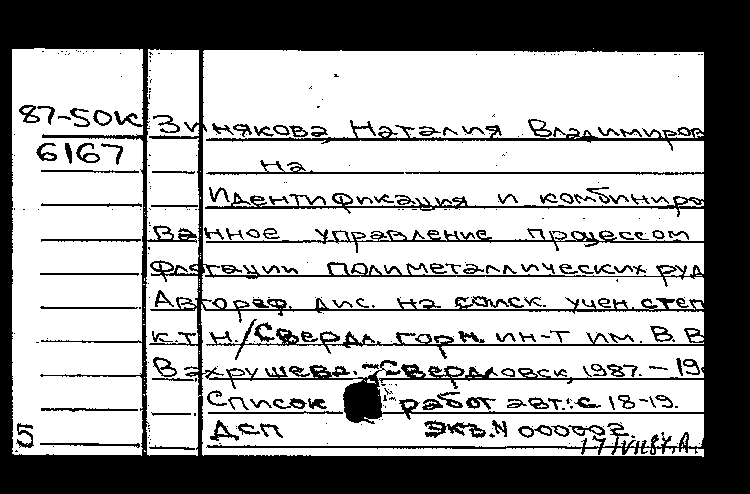 87-50К Зинякова Наталия Владимиров
6167 на.
Идентификация и комбиниро
ванное управление процессом
флотации полиметаллических руд
Автореф. дис. на соиск. учен. степ
к.т.н./Свердл. горн. ин-т им. В.В
Вахрушева. - Свердловск, 1987. - 19
Список работ авт.: с 18-19.
ДСП Экз.N 000002.
5